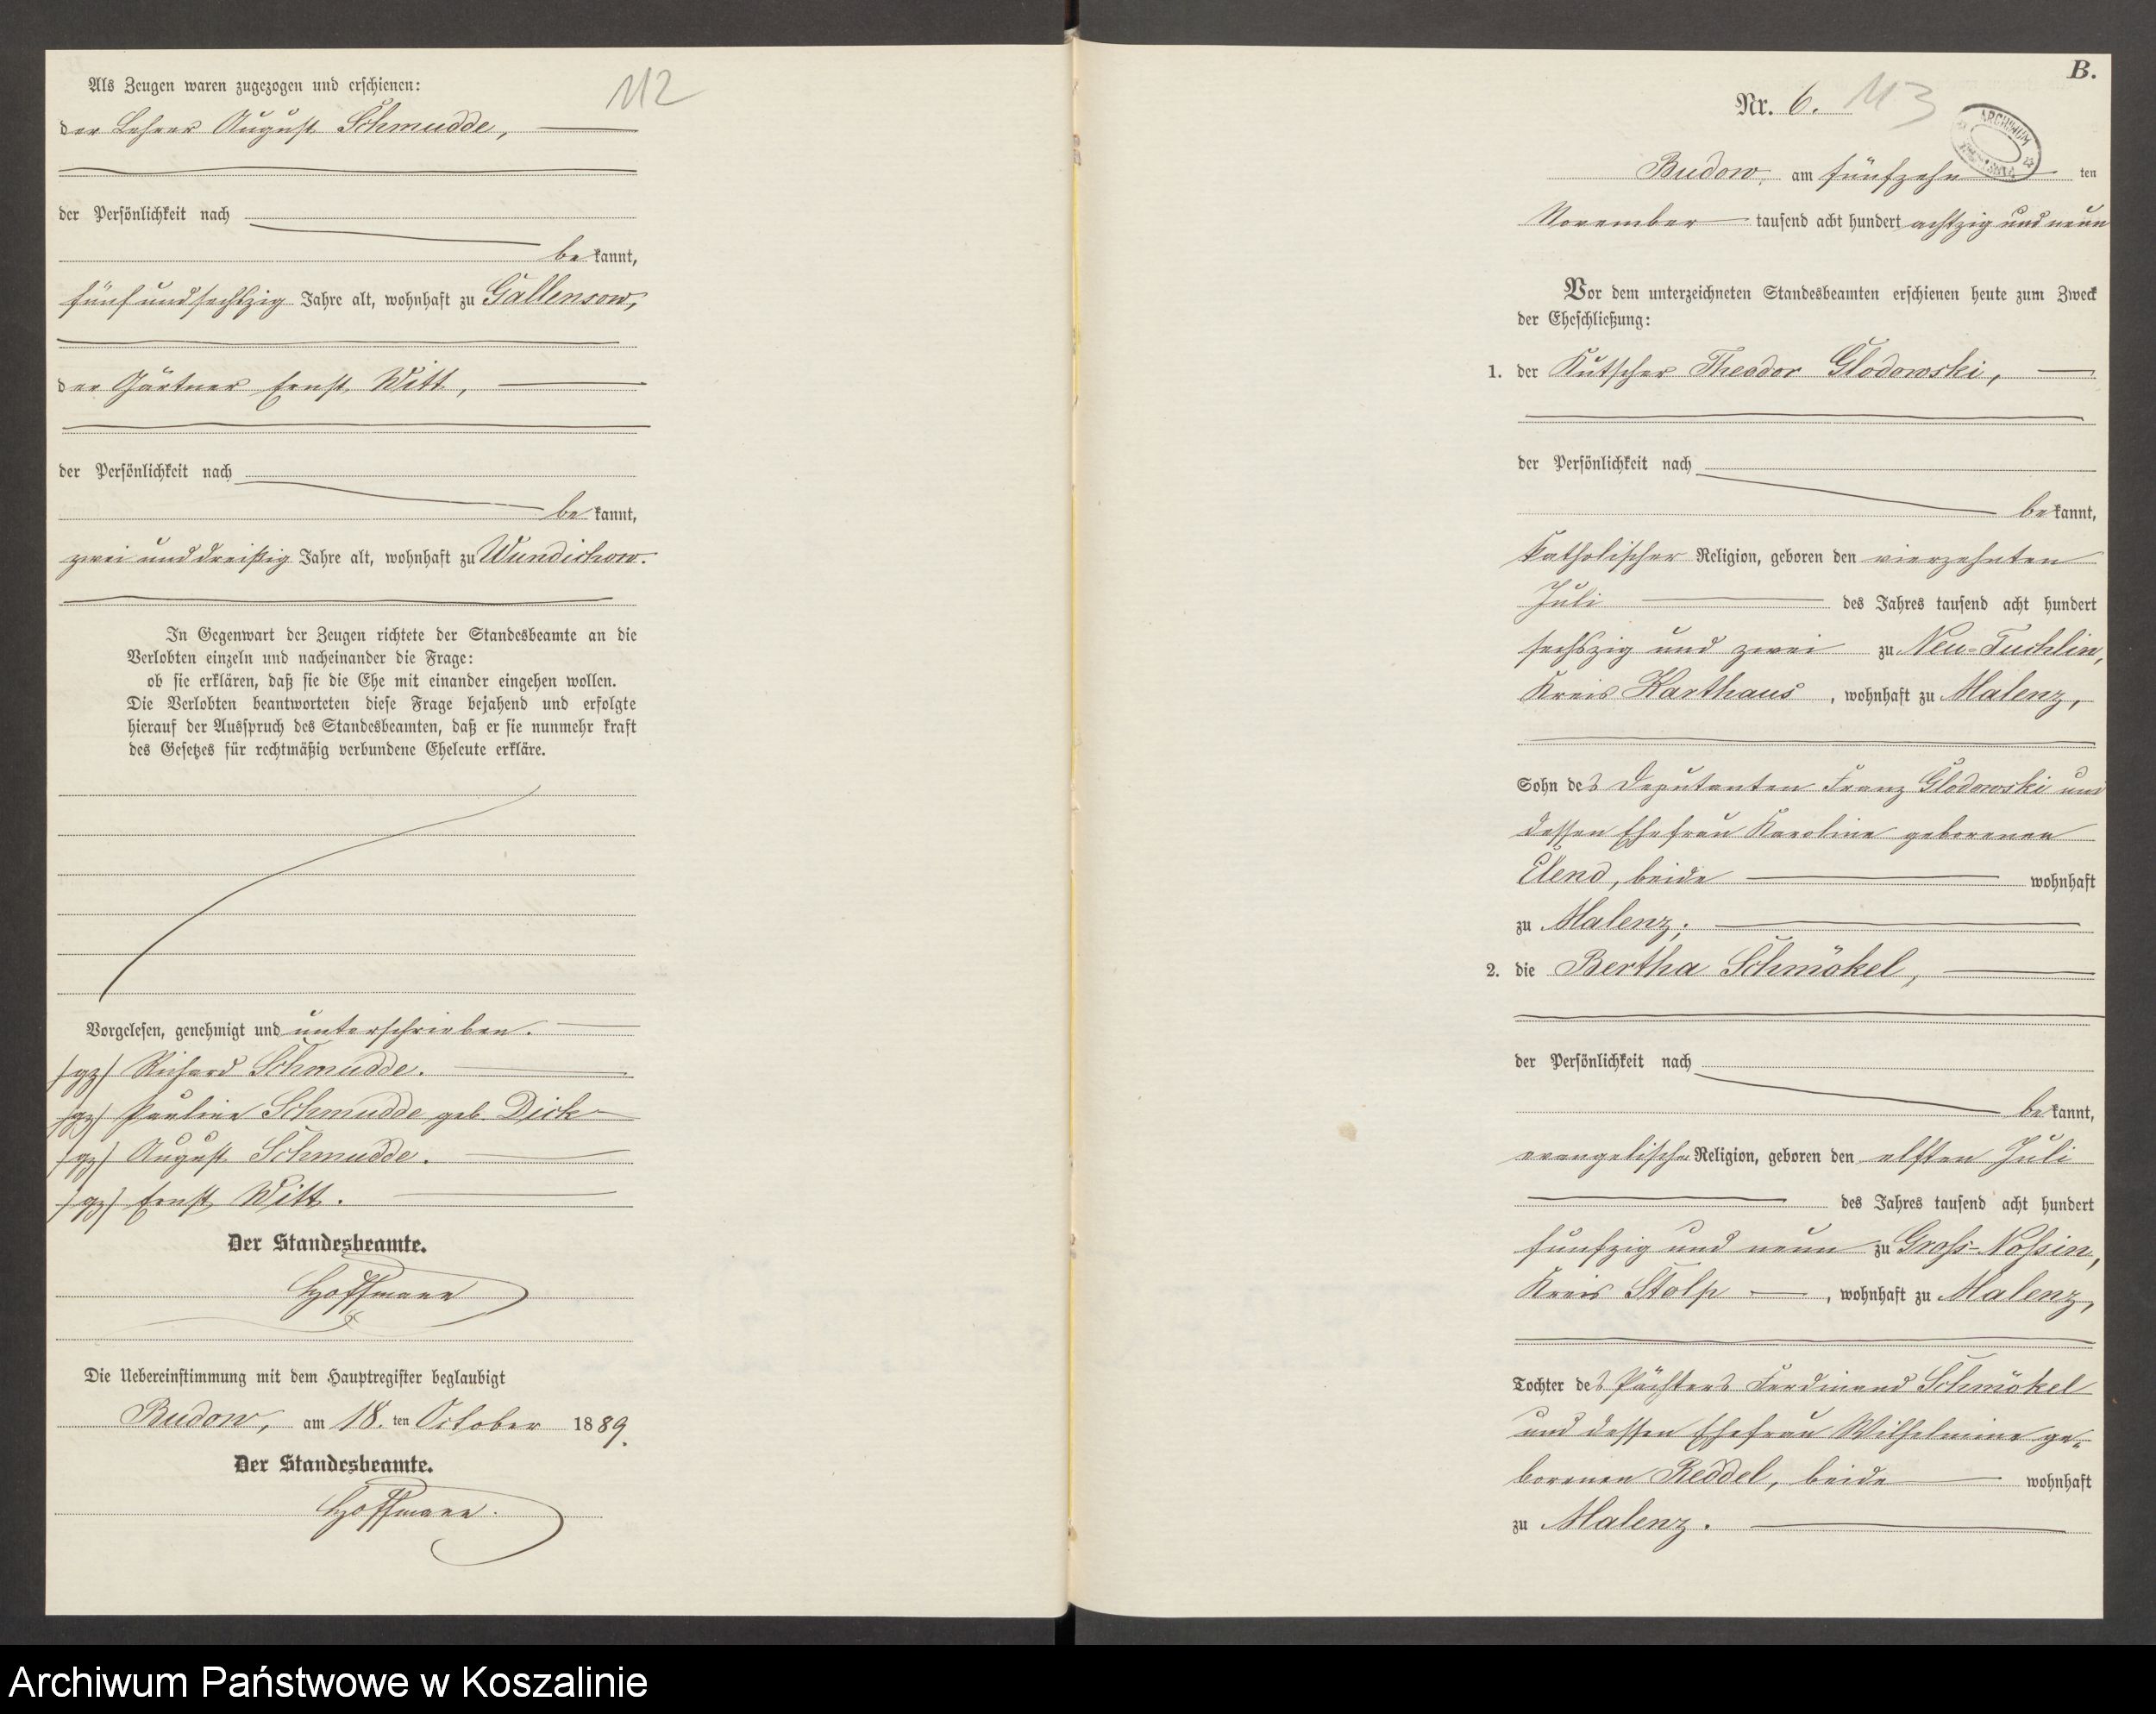 112
Als Zeugen waren zugezogen und erschienen:
der Lehrer August Schmudde,
der Persönlichkeit nach
be kannt,
fünf und sechszig Jahre alt, wohnhaft zu Gallensow,
der Gärtner Ernst Witt,
der Persönlichkeit nach
be kannt,
zwei und dreißig Jahre alt, wohnhaft zu Wundichow.
In Gegenwart der Zeugen richtete der Standesbeamte an die
Verlobten einzeln und nacheinander die Frage:
ob sie erklären, daß sie die Ehe mit einander eingehen wollen.
Die Verlobten beantworteten diese Frage bejahend und erfolgte
hierauf der Ausspruch des Standesbeamten, daß er sie nunmehr kraft
des Gesetzes für rechtmäßig verbundene Eheleute erkläre.
Vorgelesen, genehmigt und unterschrieben.
/gz/ Richard Schmudde.
/gz/ Pauline Schmudde geb. Dick
/gz/ August Schmudde.
/gz/ Ernst Witt.
Der Standesbeamte.
Hoffmann
Die Uebereinstimmung mit dem Hauptregister beglaubigt
Budow, am 18. ten October 1889.
Der Standesbeamte.
Hoffmann.
B.
Nr. 6. 113
ARCHIWUM
Budow, am fünfzehn ten
November tausend acht hundert achtzig und neun
Vor dem unterzeichneten Standesbeamten erschienen heute zum Zweck
der Eheschließung:
1. der Kutscher Theodor Glodowski,
der Persönlichkeit nach
be kannt,
katholischer Religion, geboren den vierzehnten
Juli des Jahres tausend acht hundert
sechszig und zwei zu Neu-Tuchlin,
Kreis Karthaus, wohnhaft zu Malenz,
Sohn des Deputanten Franz Glodowski und
dessen Ehefrau Karoline geborenen
Elend, beide wohnhaft
zu Malenz;
2. die Bertha Schmökel,
der Persönlichkeit nach
be kannt,
evangelischer Religion, geboren den elften Juli
des Jahres tausend acht hundert
fünfzig und neun zu Groß-Nossin,
Kreis Stolp, wohnhaft zu Malenz,
Tochter des Pächters Ferdinand Schmökel
und dessen Ehefrau Wilhelmine ge-
borenen Reddel, beide wohnhaft
zu Malenz.
Archiwum Państwowe w Koszalinie